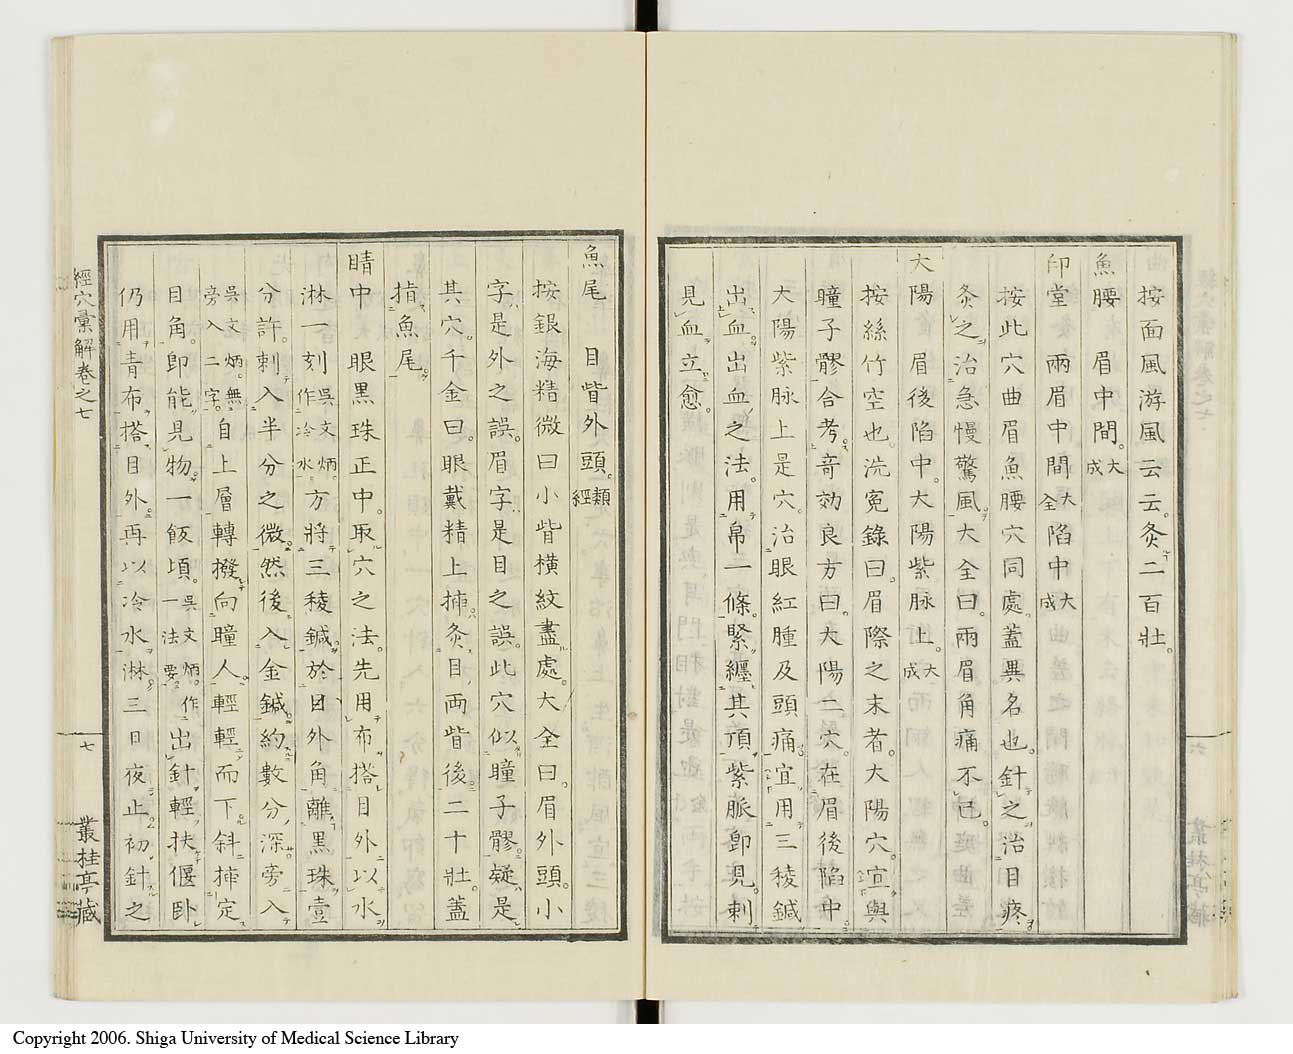 按面風游風云云。灸二百壯。
魚腰　眉中間。大成
印堂　兩眉中間大全陷中大成
按此穴曲眉魚腰穴同處。蓋異名也。針之治目疼。
灸之治急慢驚風。大全曰。兩眉角痛不已。
大陽　眉後陷中。大陽紫脉上。大成
按絲竹空也。洗冤錄曰。眉際之末者。大陽穴。宜與
瞳子髎合考。奇効良方曰。大陽二穴。在眉後陷中
大陽紫脉上是穴。治眼紅腫及頭痛。宜用三稜鍼
出血。出血之法。用帛一條。緊纏其項。紫脈即見。刺
見血立愈。
魚尾　目眥外頭。類經
按銀海精微曰小眥橫紋盡處。大全曰。眉外頭。小
字是外之誤。眉字是目之誤。此穴似瞳子髎。疑是
其穴。千金曰。眼戴精上揷。灸目両眥後二十壯。蓋
指魚尾。
睛中　眼黑珠正中。取穴之法。先用布搭目外以水
淋一刻吳文炳。作冷水。方將三稜鍼。於目外角離黑珠壹
分許。刺入半分之微。然後入金鍼。約數分。深旁入
吳文炳。無旁入二字。自上層轉撥向瞳人。輕輕而下。斜揷定
目角。即能見物。一飯頃。吳文炳。作一法要。出針。輕扶偃卧
仍用青布搭目外。再以冷水淋。三日夜止。初針之
經穴彙解卷之七
七
叢桂亭藏
Copyright 2006. Shiga University of Medical Science Library